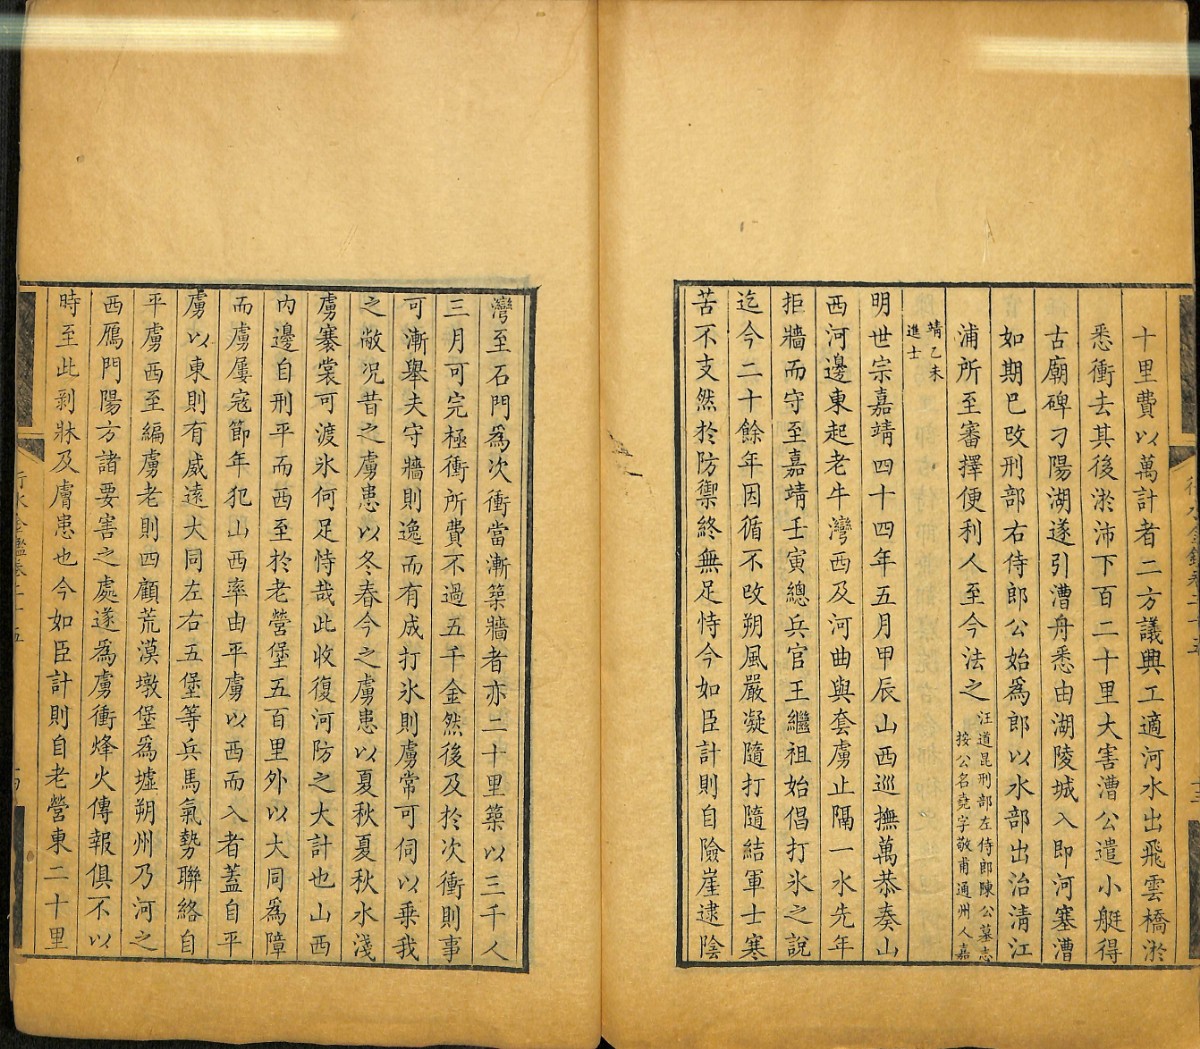 十里費以萬計者二方議興工適河水出飛雲橋淤
悉衝去其後淤沛下百二十里大害漕公遣小艇得
古廟碑刁陽湖遂引漕舟悉由湖陵城入即河塞漕
如期巳攺刑部右侍郎公始爲郎以水部出治淸江
浦所至審擇便利人至今法之
汪道昆刑部左侍郎陳公墓志
按公名堯字敬甫通州人嘉
靖乙未
進士
明世宗嘉靖四十四年五月甲辰山西巡撫萬恭奏山
西河邊東起老牛灣西及河曲與套虜止隔一水先年
拒牆而守至嘉靖壬寅總兵官王繼祖始倡打氷之說
迄今二十餘年因循不攺朔風嚴凝隨打隨結軍士寒
苦不支然於防禦終無足恃今如臣計則自險崖逮陰
灣至石門爲次衝當漸築牆者亦二十里築以三千人
三月可完極衝所費不過五千金然後及於次衝則事
可漸舉夫守牆則逸而有成打氷則虜常可伺以乗我
之敝况昔之虜患以冬春今之虜患以夏秋夏秋水淺
虜褰裳可渡氷何足恃哉此收復河防之大計也山西
內邊自刑平而西至於老營堡五百里外以大同爲障
而虜屢寇節年犯山西率由平虜以西而入者蓋自平
虜以東則有威遠大同左右五堡等兵馬氣勢聯絡自
平虜西至編虜老則四顧荒漠墩堡爲墟朔州乃河之
西鴈門陽方諸要害之處遂爲虜衝烽火傳報俱不以
時至此剥牀及膚患也今如臣計則自老營東二十里
行水金鑑卷二十五